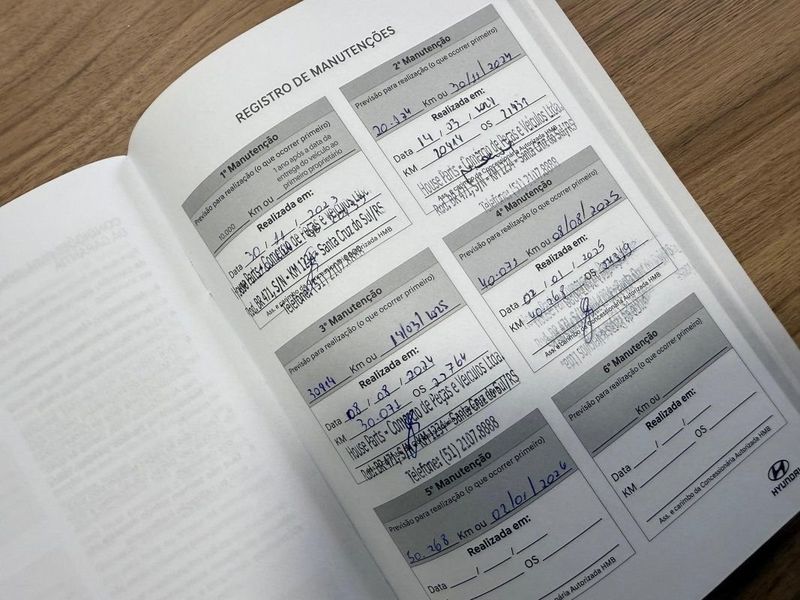 REGISTRO DE MANUTENÇÕES
1ª Manutenção
Previsão para realização (o que ocorrer primeiro)
10.000 Km ou
1 ano após a data da
entrega do veículo ao
primeiro proprietário
Realizada em:
Data 30 / 11 / 2023
House Parts - Comércio de Peças e Veículos Ltda.
Rod. BR 471, S/N - KM 1234 - Santa Cruz do Sul/RS
Telefone: (51) 2107.8888
2ª Manutenção
Previsão para realização (o que ocorrer primeiro)
20.174 Km ou 30/11/2024
Realizada em:
Data 14 / 03 / 2024
KM 20914 OS 21931
House Parts - Comércio de Peças e Veículos Ltda.
Rod. BR 471, S/N - KM 1234 - Santa Cruz do Sul/RS
Telefone: (51) 2107.8888
3ª Manutenção
Previsão para realização (o que ocorrer primeiro)
30914 Km ou 14/03/2025
Realizada em:
Data 08 / 08 / 2024
KM 30.071 OS 22764
House Parts - Comércio de Peças e Veículos Ltda.
Rod. BR 471, S/N - KM 1234 - Santa Cruz do Sul/RS
Telefone: (51) 2107.8888
4ª Manutenção
Previsão para realização (o que ocorrer primeiro)
40.071 Km ou 08/08/2025
Realizada em:
Data 02 / 01 / 2025
KM 40.268 OS
Ass. e carimbo da Concessionária Autorizada HMB
5ª Manutenção
Previsão para realização (o que ocorrer primeiro)
50.268 Km ou 02/01/2026
Realizada em:
Data / /
OS
Concessionária Autorizada HMB
6ª Manutenção
Previsão para realização (o que ocorrer primeiro)
Km ou
Realizada em:
Data / /
KM OS
Ass. e carimbo da Concessionária Autorizada HMB
HYUNDAI